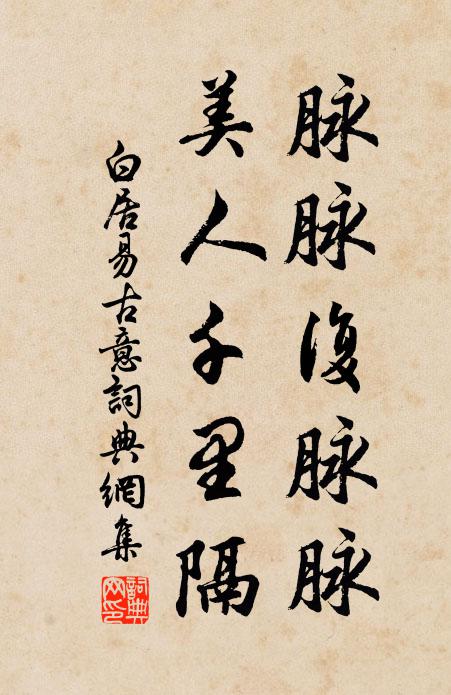 脉脉復脉脉
美人千里隔
白居易古意詞典網集
詞典
网印